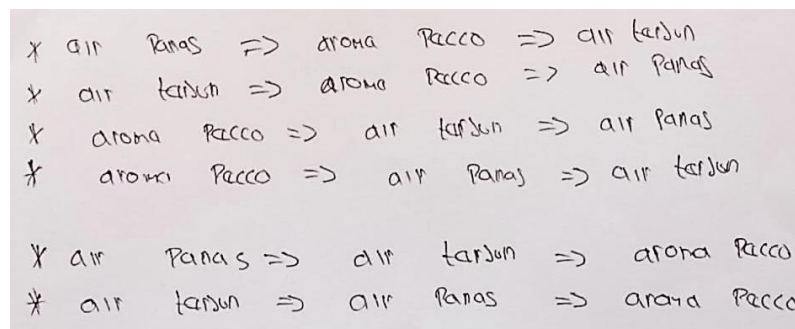 * air Panas => aroma Pacco => air terjun
* air terjun => aroma Pacco => air Panas
* aroma Pacco => air terjun => air Panas
* aroma Pacco => air Panas => air terjun
* air Panas => air terjun => aroma Pacco
* air terjun => air Panas => aroma Pacco